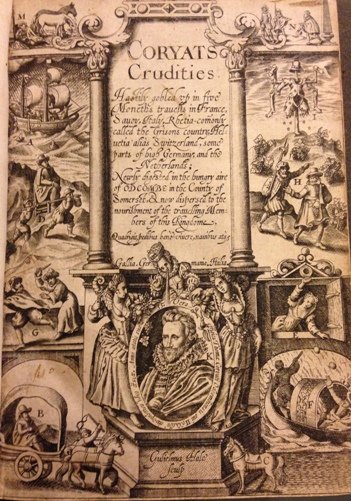 M
CORYATS
Crudities
Hastily gobled vp in five
Moneths trauells in France,
Sauoy, Italy, Rhetia comonly
called the Grisons country, Hel-
uetia alias Switzerland, some
parts of high Germany, and the
Netherlands;
Newly digested in the hungry aire
of ODCOMBE in the County of
Somerset, & now dispersed to the
nourishment of the trauelling Mem-
bers of this Kingdome.
Gallia. Ger mania. Italia
H
G
B
F
Gulielmus Hole
sculp